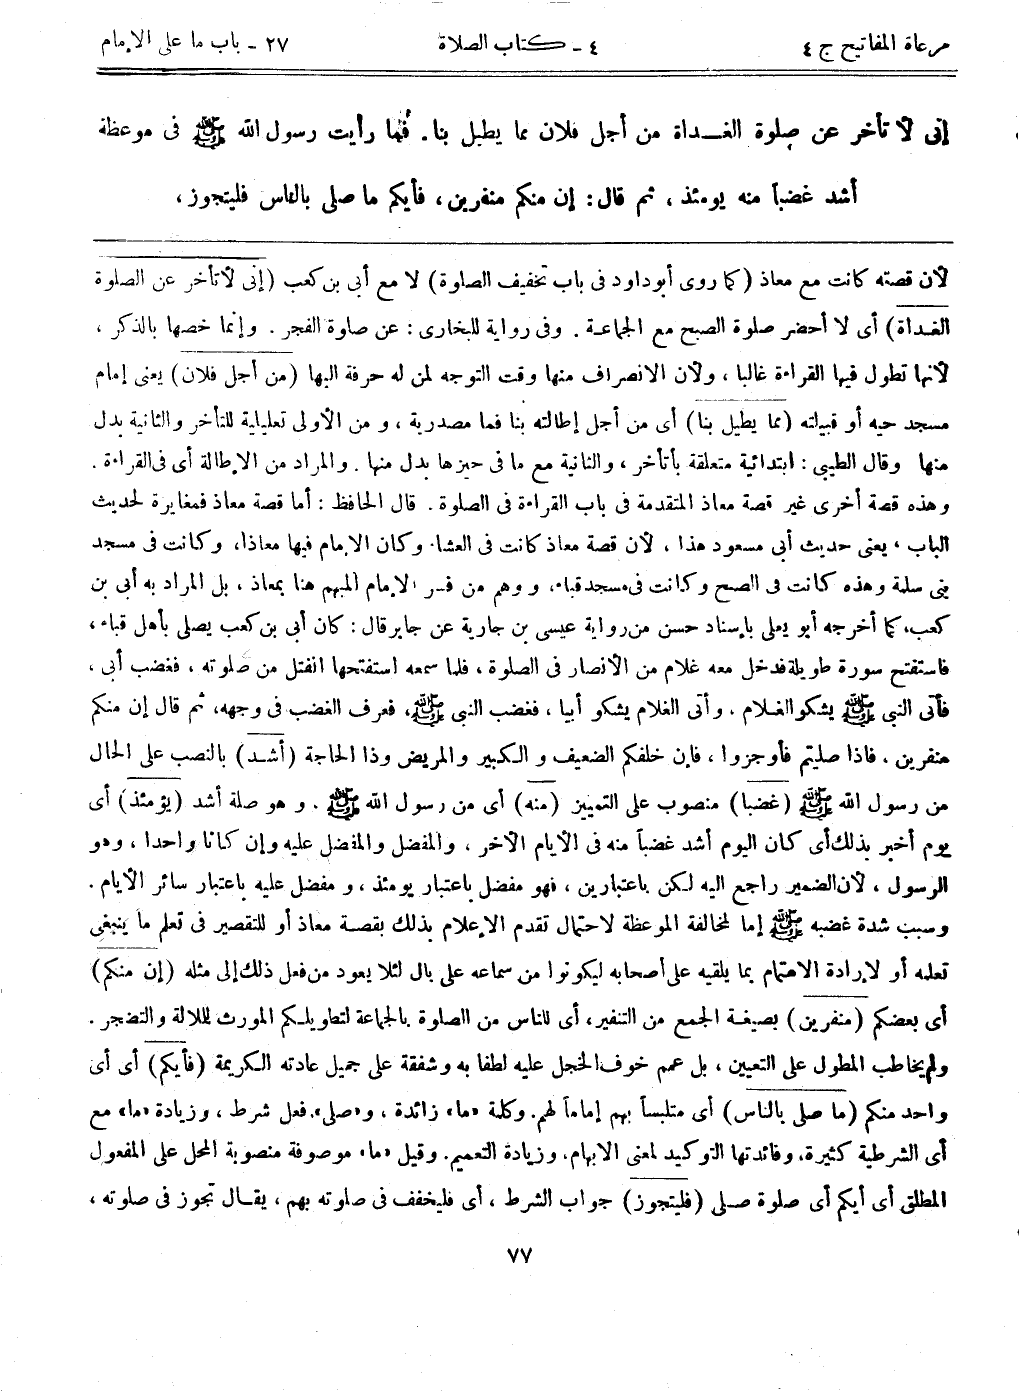 مرعاة المفاتيح ج ٤ ٤ ـ كتاب الصلاة ٢٧ ـ باب ما على الإمام
إنى لا تأخر عن صلوة الغــداة من أجل فلان مما يطيل بنا. فما رأيت رسول الله ﷺ فى موعظة
أشد غضبا منه يومئذ ، ثم قال: إن منكم منفرين، فأيكم ما صلى بالناس فليتجوز،
لأن قصته كانت مع معاذ (كما روى أبوداود فى باب تخفيف الصلوة) لا مع أبي بن كعب (إنى لا تأخر عن الصلوة
الغداة) أى لا أحضر صلوة الصبح مع الجماعة . وفى رواية للبخارى: عن صلوة الفجر. وإنما خصها بالذكر ،
لأنها تطول فيها القراءة غالبا ، ولأن الانصراف منها وقت التوجه لمن له حرفة اليها (من أجل فلان) يعنى إمام
مسجد حيه أو قبيلته (مما يطيل بنا) أى من أجل إطالته بنا فما مصدرية ، و من الأولى تعليلية للتأخر والثانية بدل
منها وقال الطيبى: ابتدائية متعلقة بأتأخر ، والثانية مع ما فى حيزها بدل منها. والمراد من الإطالة أى فى القراءة.
وهذه قصة أخرى غير قصة معاذ المتقدمة فى باب القراءة فى الصلوة. قال الحافظ: أما قصة معاذ فمغايرة لحديث
الباب ، يعنى حديث أبي مسعود هذا ، لأن قصة معاذ كانت فى العشاء وكان الإمام فيها معاذا، وكانت فى مسجد
بنى سلمة وهذه كانت فى الصبح وكانت فى مسجد قباء، و وهم من فسر الإمام المبهم هنا بمعاذ ، بل المراد به أبي بن
كعب، كما أخرجه أبو يعلى بإسناد حسن من رواية عيسى بن جارية عن جابر قال: كان أبي بن كعب يصلى بأهل قباء،
فاستفتح سورة طويلة فدخل معه غلام من الأنصار فى الصلوة ، فلما سمعه استفتحها انفتل من صلوته ، فغضب أبي ،
فأتى النبى ﷺ يشكو الغلام . وأتى الغلام يشكو أبيا ، فغضب النبى ﷺ، فعرف الغضب فى وجهه، ثم قال إن منكم
منفرين ، فاذا صليتم فأوجزوا ، فإن خلفكم الضعيف و الكبير والمريض وذا الحاجة (أشد) بالنصب على الحال
من رسول الله ﷺ (غضبا) منصوب على التمييز (منه) أى من رسول الله ﷺ . و هو صلة أشد (يؤمئذ) أى
يوم أخبر بذلك أى كان اليوم أشد غضبا منه فى الأيام الآخر ، والمفضل والمفضل عليه وإن كانا واحدا ، وهو
الرسول ، لأن الضمير راجع اليه لكن باعتبارين ، فهو مفضل باعتبار يومئذ ، و مفضل عليه باعتبار سائر الأيام.
وسبب شدة غضبه ﷺ إما لمخالفة الموعظة لاحتمال تقدم الإعلام بذلك بقصة معاذ أو للتقصير فى تعلم ما ينبغى
تعلمه أو لإرادة الاهتمام بما يلقيه على أصحابه ليكونوا من سماعه على بال لئلا يعود من فعل ذلك إلى مثله (إن منكم)
أى بعضكم (منفرين) بصيغة الجمع من التنفير، أى للناس من الصلوة بالجماعة لتطويلكم المورث للملالة والتضجر.
ولم يخاطب المطول على التعيين ، بل عمم خوف الخجل عليه لطفا به وشفقة على جميل عادته الكريمة (فأيكم) أى أى
واحد منكم (ما صلى بالناس) أى متلبسا بهم إماما لهم. وكلمة «ما» زائدة ، و«صلى» فعل شرط ، وزيادة «ما» مع
أى الشرطية كثيرة، وفائدتها التوكيد لمعنى الابهام، وزيادة التعميم. وقيل «ما» موصوفة منصوبة المحل على المفعول
المطلق أى أيكم أى صلوة صلى (فليتجوز) جواب الشرط ، أى فليخفف فى صلوته بهم ، يقال تجوز فى صلوته ،
٧٧